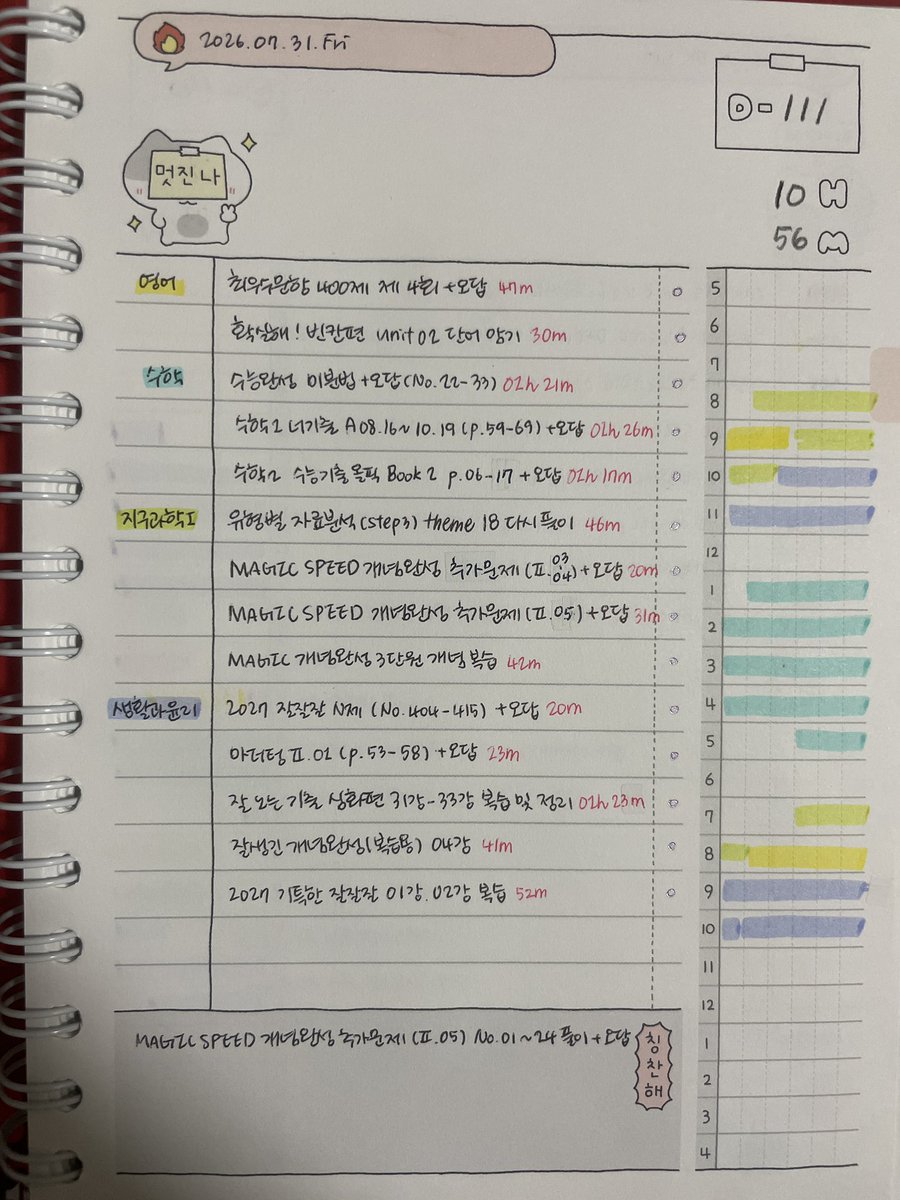 2026.07.31.Fri
D-111
멋진 나
10 H
56 M
영어
최우수문항 400제 제 4회 +오답 47m
확실해! 빈칸편 unit 02 단어 암기 30m
수학
수능완성 미분법 +오답(No.22-33) 02h 21m
수학2 너기출 A08.16~10.19 (p.59-69) +오답 02h 26m
수학2 수능기출 올픽 Book 2 p.06-17 +오답 02h 17m
지구과학I
유형별 자료분석(step3) theme 18 다시풀이 46m
MAGIC SPEED 개념완성 추가문제 (II.03, 04)+오답 20m
MAGIC SPEED 개념완성 추가문제 (II.05) +오답 31m
MAGIC 개념완성 3단원 개념 복습 42m
생활과윤리
2027 잘잘잘 N제 (No.404-415) +오답 20m
마더텅 II.02 (p.53-58) +오답 23m
잘 노는 기출 심화편 31강-33강 복습 및 정리 02h 23m
잘생긴 개념완성(복습용) 04강 41m
2027 기특한 잘잘잘 01강.02강 복습 52m
MAGIC SPEED 개념완성 추가문제 (II.05) No.01~24 풀이+오답
칭찬해
5
6
7
8
9
10
11
12
1
2
3
4
5
6
7
8
9
10
11
12
1
2
3
4